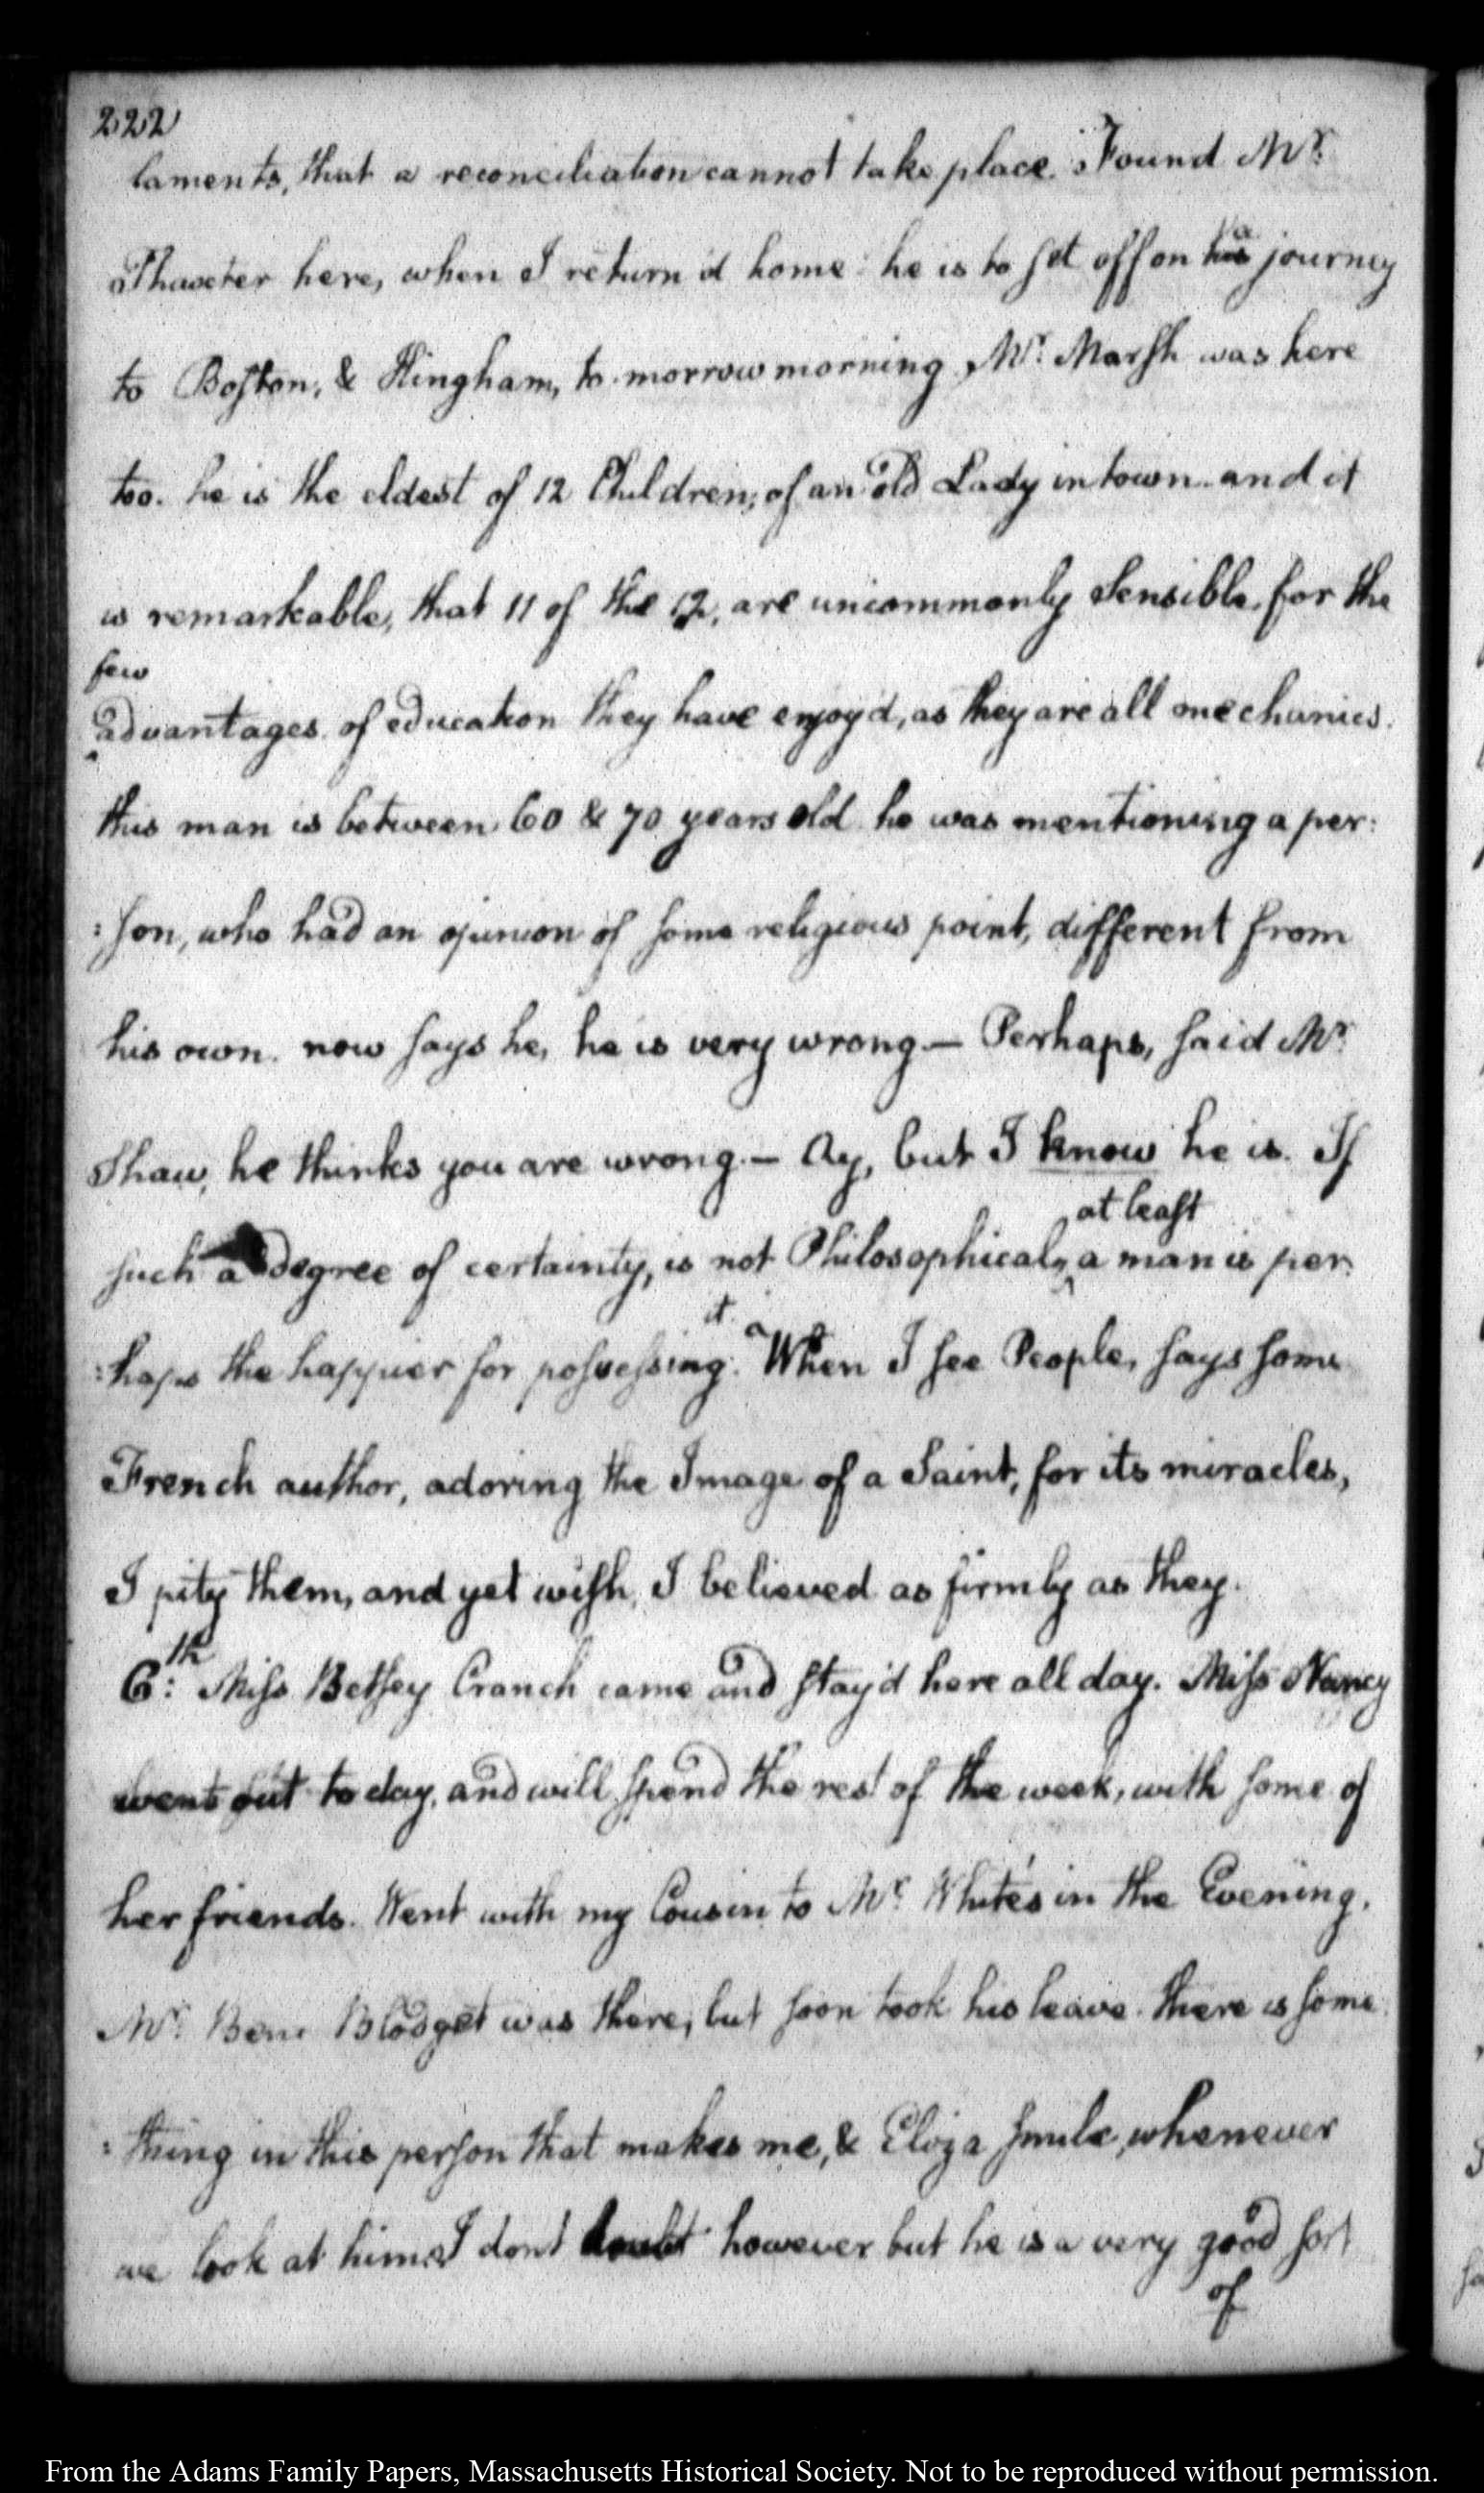 222
laments, that a reconciliation cannot take place. Found Mr.
Thaxter here, when I return'd home: he is to set off on a journey
to Boston, & Hingham, to-morrow morning. Mr. Marsh was here
too. he is the eldest of 12 Children, of an old Lady in town. and it
is remarkable, that 11 of the 12, are uncommonly Sensible, for the
few
advantages of education they have enjoy'd, as they are all mechanics.
this man is between 60 & 70 years old. he was mentioning a per:
:son, who had an opinion of some religious point, different from
his own. now says he, he is very wrong.— Perhaps, said Mr.
Shaw, he thinks you are wrong.— Ay, but I know he is. If
at least
such a degree of certainty, is not Philosophical, a man is per:
it
:haps the happier for possessing. When I see People, says some
French author, adoring the Image of a Saint, for its miracles,
I pity them, and yet wish, I believed as firmly as they.
6:th Miss Betsey Cranch came and stay'd here all day. Miss Nancy
went out to day, and will spend the rest of the week, with some of
her friends. Went with my Cousin to Mr. White's in the Evening.
Mr. Blodget was there, but soon took his leave. there is some
:thing in this person that makes me, & Eliza smile, whenever
we look at him. I dont doubt however but he is a very good sort
of
From the Adams Family Papers, Massachusetts Historical Society. Not to be reproduced without permission.